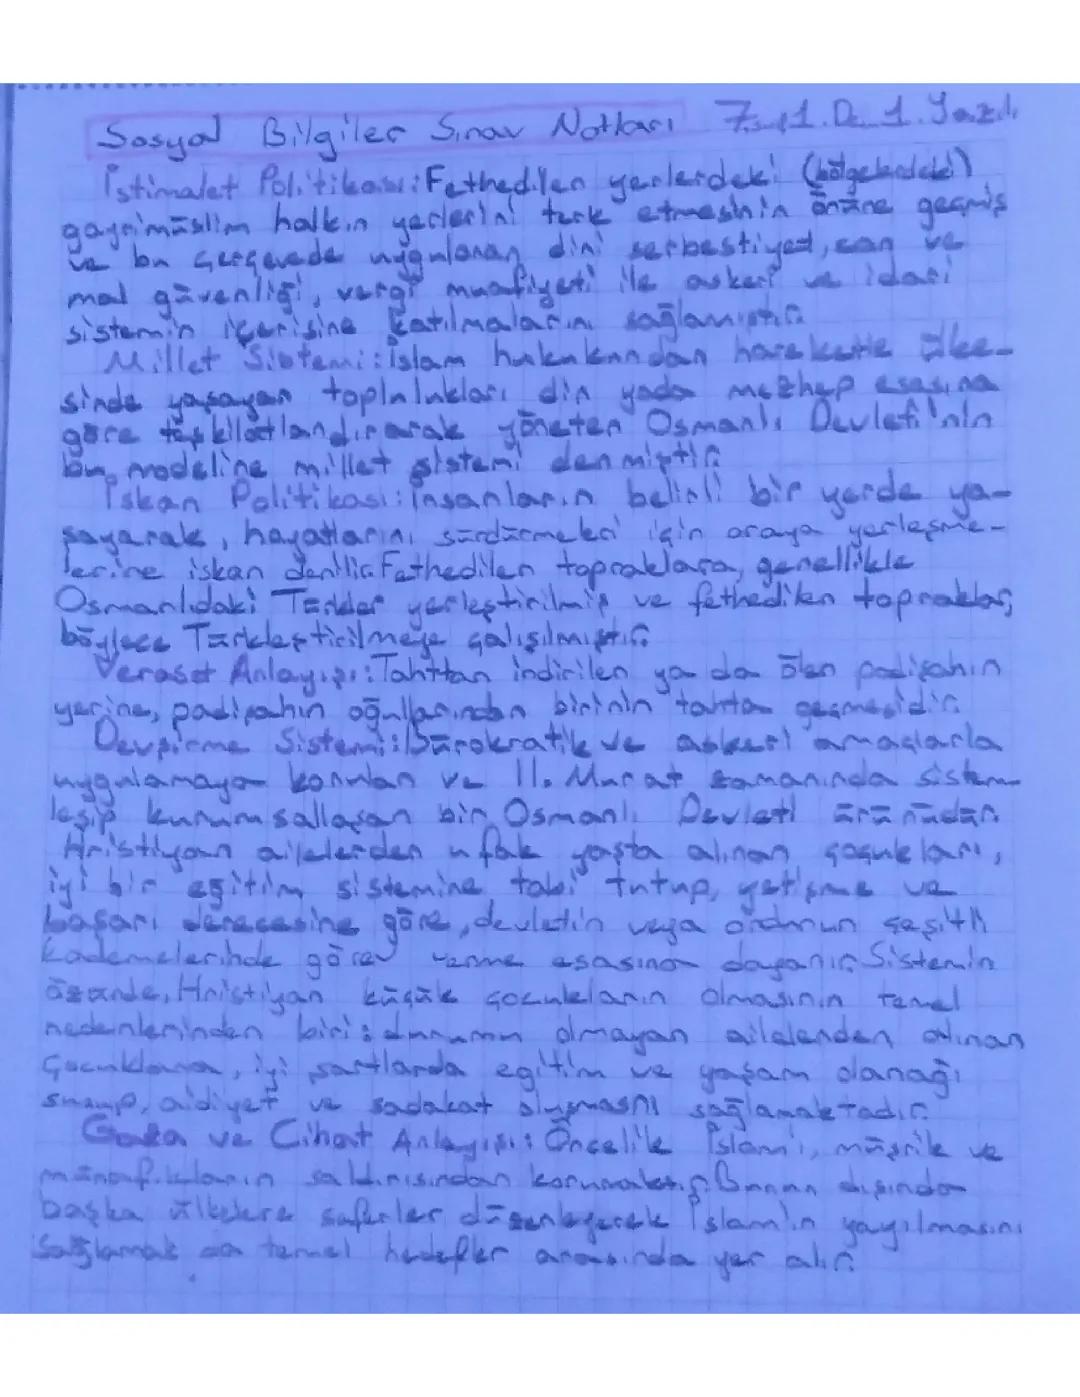 Sosyal Bilgiler Sınav Notları 7.Sınıf 1.Dö. 1.Yazılı
İstimalet Politikası: Fethedilen yerlerdeki (bölgelerdeki)
gayrimüslim halkın yerlerini terk etmesinin önüne geçmiş
ve bu çerçevede uygulanan dini serbestiyet, can ve
mal güvenliği, vergi muafiyeti ile askeri ve idari
sistemin içerisine katılmalarını sağlamıştır.
Millet Sistemi: İslam hukukundan hareketle ülke-
sinde yaşayan toplulukları din yada mezhep esasına
göre teşkilatlandırarak yöneten Osmanlı Devleti'nin
bu modeline millet sistemi denmiştir.
İskan Politikası: İnsanların belirli bir yerde ya-
şayarak, hayatlarını sürdürmeleri için oraya yerleşme-
lerine iskan denilir. Fethedilen topraklara, genellikle
Osmanlıdaki Türkler yerleştirilmiş ve fethedilen topraklar,
böylece Türkleştirilmeye çalışılmıştır.
Veraset Anlayışı: Tahttan indirilen ya da ölen padişahın
yerine, padişahın oğullarından birinin tahta geçmesidir.
Devşirme Sistemi: Bürokratik ve askeri amaçlarla
uygulamaya konulan ve II. Murat zamanında sistem
leşip kurumsallaşan bir Osmanlı Devleti ürünüdür.
Hristiyan ailelerden ufak yaşta alınan çocukları,
iyi bir eğitim sistemine tabi tutup, yetişme ve
başarı derecesine göre, devletin veya ordunun çeşitli
kademelerinde görev verme esasına dayanır. Sistemin
özünde, Hristiyan küçük çocukların olmasının temel
nedenlerinden biri: durumu olmayan ailelerden alınan
çocuklara, iyi şartlarda egitim ve yaşam olanağı
sunup, aidiyet ve sadakat oluşmasnı sağlamaktadır.
Gaza ve Cihat Anlayışı: Öncelik İslam'ı, müşrik ve
münafıkların saldırısından korumaktır. Bunun dışında
başka ülkelere seferler düzenleyerek İslam'ın yayılmasını
Sağlamak da temel hedefler arasında yer alır.